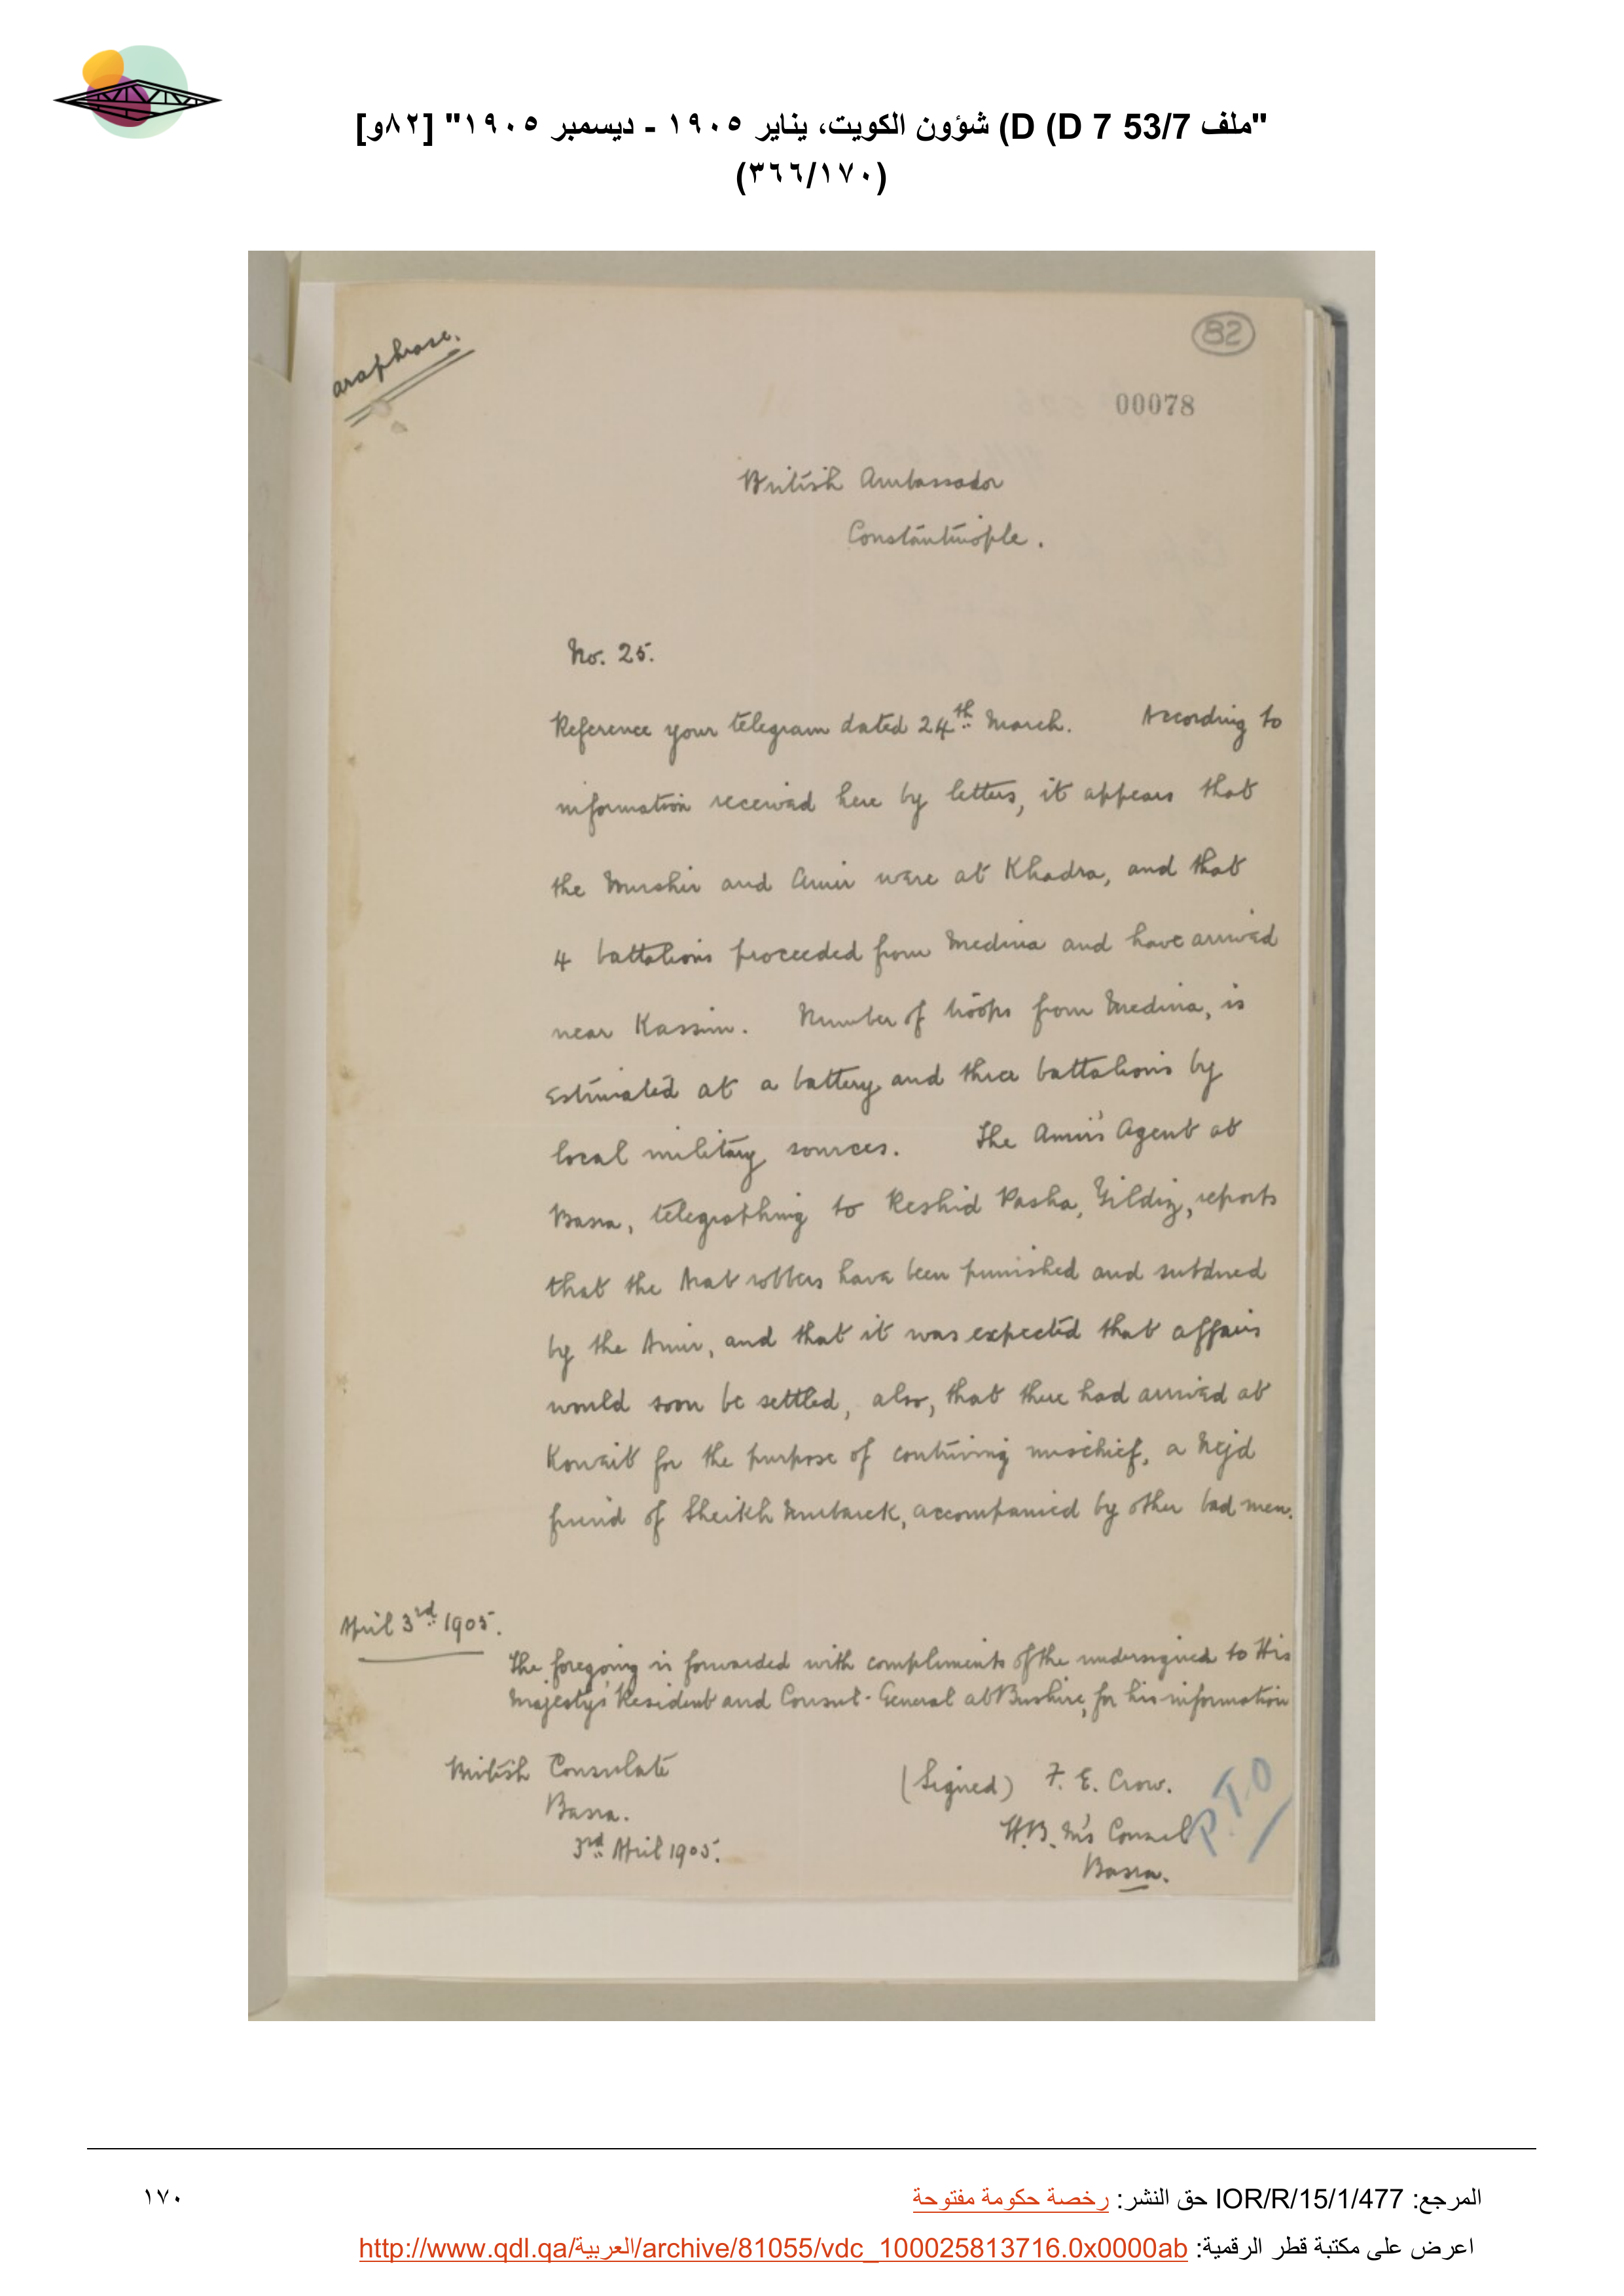 "ملف 53/7 D (D 7) شؤون الكويت، يناير ١٩٠٥ - ديسمبر ١٩٠٥" [٨٢و]
(٣٦٦/١٧٠)
araphrase.
82
00078
British Ambassador
Constantinople.
No. 25.
Reference your telegram dated 24th March. According to
information received here by letters, it appears that
the Mushir and Amir were at Khadra, and that
4 battalions proceeded from Medina and have arrived
near Kassim. Number of troops from Medina, is
estimated at a battery and three battalions by
local military sources. The Amir's Agent at
Basra, telegraphing to Reshid Pasha, Yildiz, reports
that the Arab robbers have been punished and subdued
by the Amir, and that it was expected that affairs
would soon be settled, also, that there had arrived at
Koweit for the purpose of contriving mischief, a Nejd
friend of Sheikh Mubarek, accompanied by other bad men.
April 3rd 1905.
The foregoing is forwarded with compliments of the undersigned to His
Majesty's Resident and Consul-General at Bushire, for his information
British Consulate
Basra.
3rd April 1905.
(Signed) F. E. Crow.
H.B.M's Consul
Basra.
P.T.O
المرجع: IOR/R/15/1/477 حق النشر: رخصة حكومة مفتوحة
١٧٠
اعرض على مكتبة قطر الرقمية: http://www.qdl.qa/العربية/archive/81055/vdc_100025813716.0x0000ab